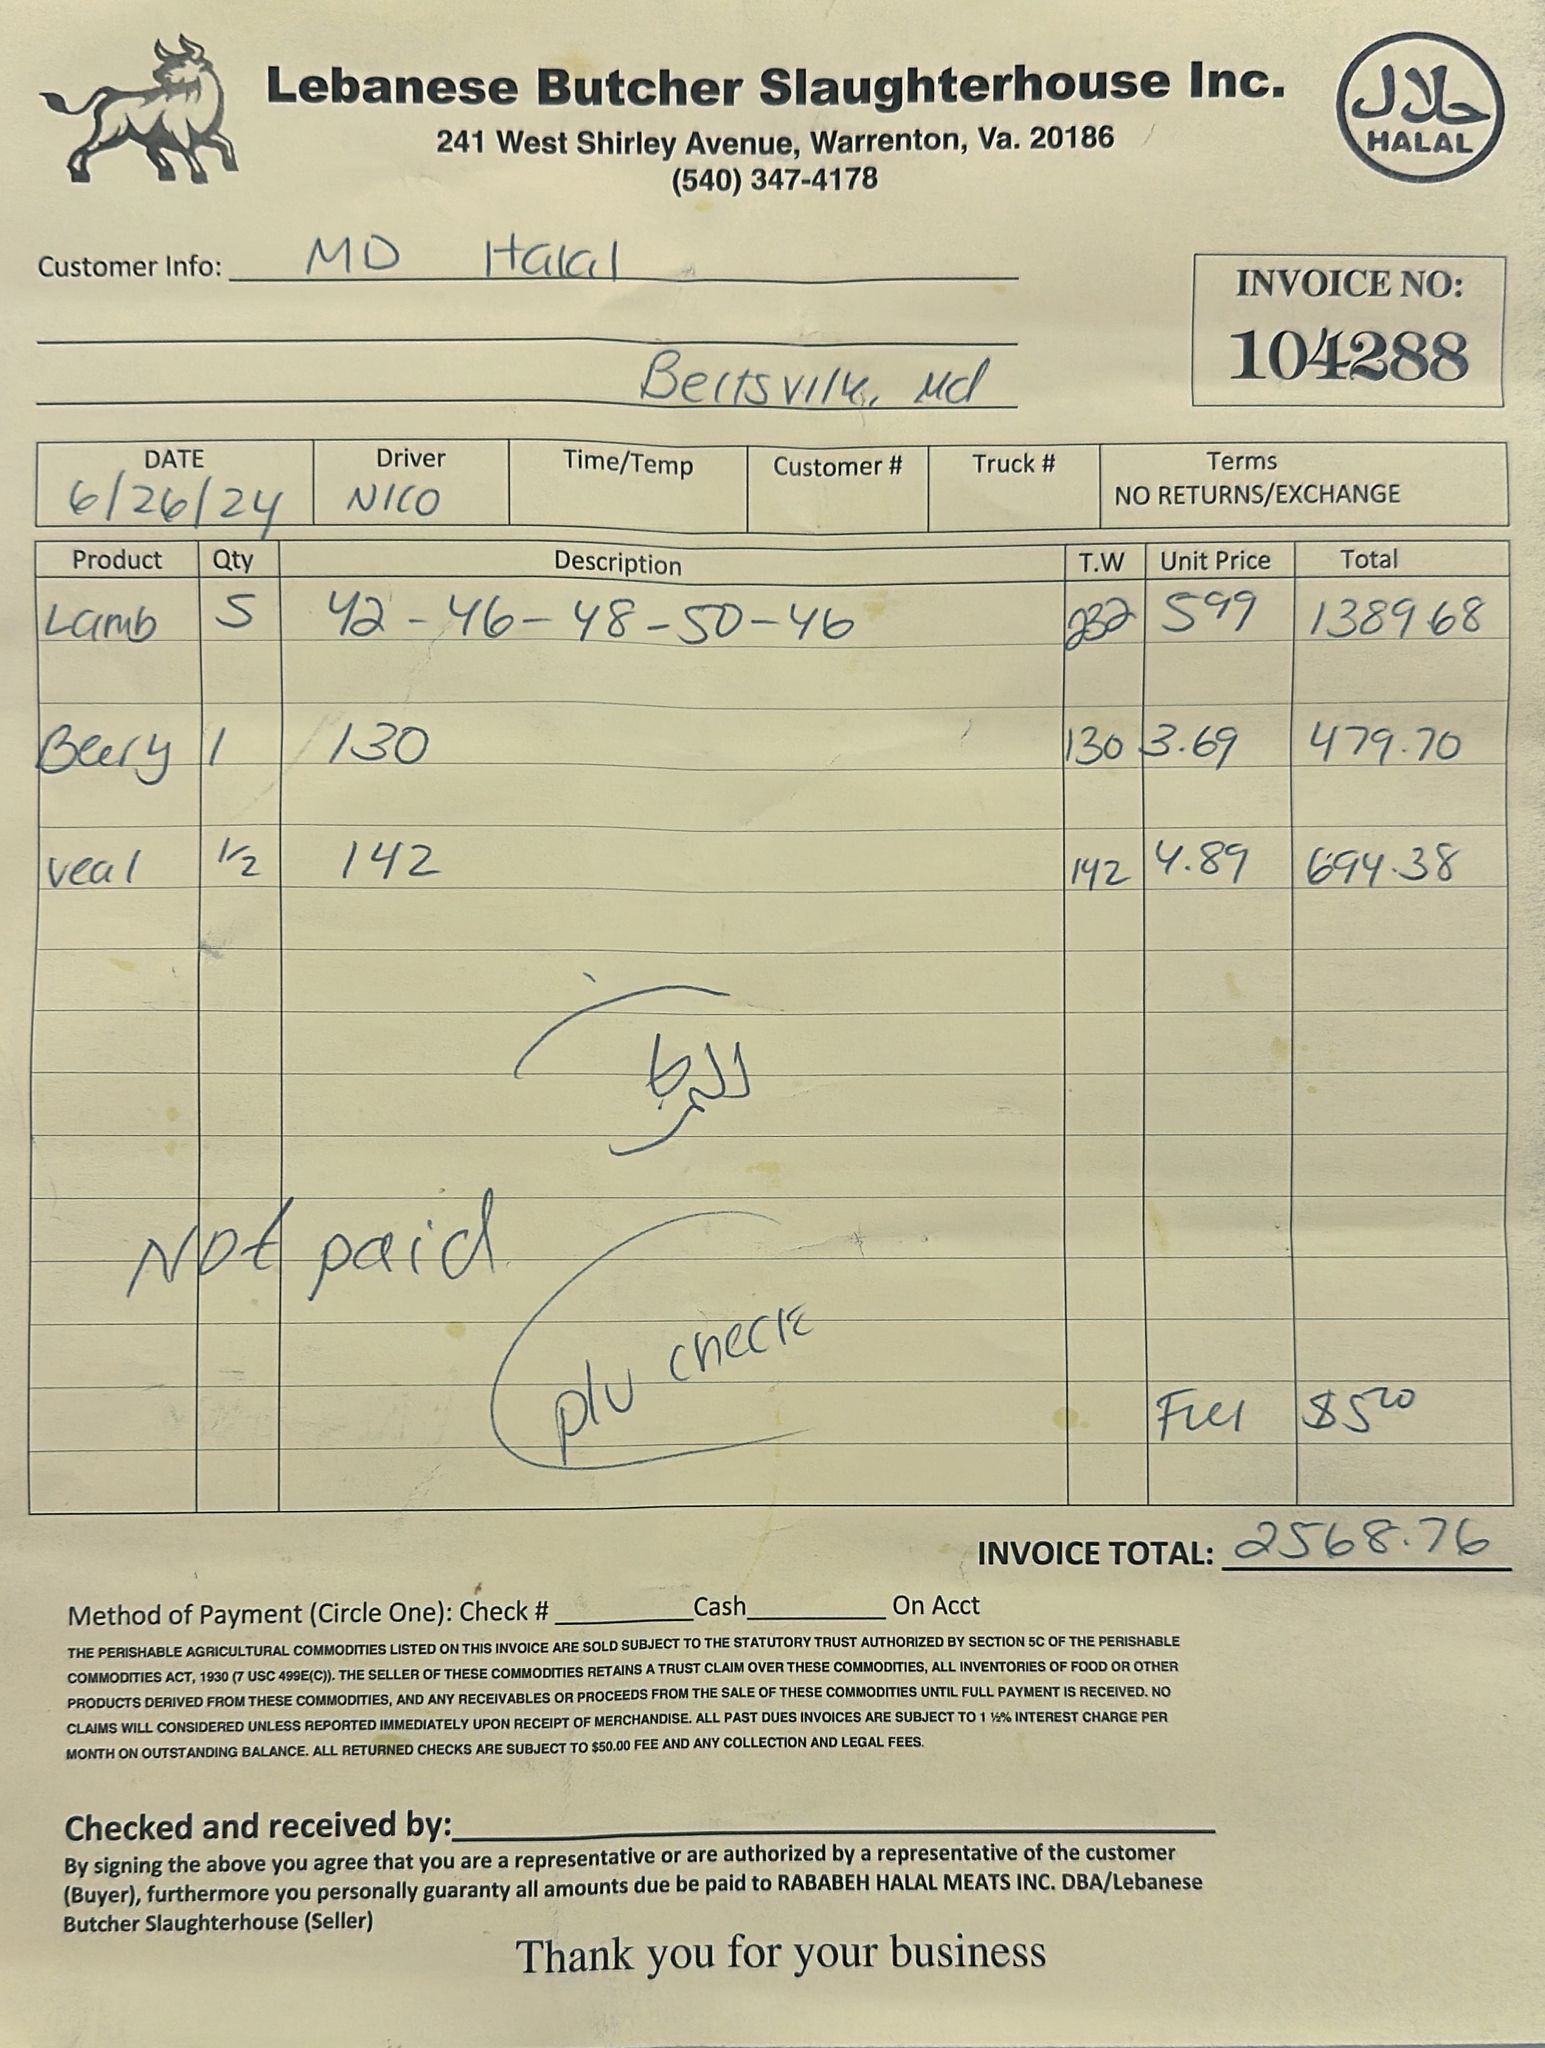 Lebanese Butcher Slaughterhouse Inc.
241 West Shirley Avenue, Warrenton, Va. 20186
(540) 347-4178
حلال
HALAL
Customer Info: MD Halal
INVOICE NO:
104288
Md
DATE Driver Time/Temp Customer # Truck # Terms
6/26/24 NICO NO RETURNS/EXCHANGE
Product Qty Description T.W Unit Price Total
Lamb 5 42 - 46 - 48 - 50 - 46 232 5 99 1389 68
1 130 130 3.69 479.70
veal 1/2 142 142 4.89 694.38
Not paid
check
Fuel $5 00
INVOICE TOTAL: 2568.76
Method of Payment (Circle One): Check # Cash On Acct
THE PERISHABLE AGRICULTURAL COMMODITIES LISTED ON THIS INVOICE ARE SOLD SUBJECT TO THE STATUTORY TRUST AUTHORIZED BY SECTION 5C OF THE PERISHABLE
COMMODITIES ACT, 1930 (7 USC 499E(C)). THE SELLER OF THESE COMMODITIES RETAINS A TRUST CLAIM OVER THESE COMMODITIES, ALL INVENTORIES OF FOOD OR OTHER
PRODUCTS DERIVED FROM THESE COMMODITIES, AND ANY RECEIVABLES OR PROCEEDS FROM THE SALE OF THESE COMMODITIES UNTIL FULL PAYMENT IS RECEIVED. NO
CLAIMS WILL CONSIDERED UNLESS REPORTED IMMEDIATELY UPON RECEIPT OF MERCHANDISE. ALL PAST DUES INVOICES ARE SUBJECT TO 1 ½% INTEREST CHARGE PER
MONTH ON OUTSTANDING BALANCE. ALL RETURNED CHECKS ARE SUBJECT TO $50.00 FEE AND ANY COLLECTION AND LEGAL FEES.
Checked and received by:
By signing the above you agree that you are a representative or are authorized by a representative of the customer
(Buyer), furthermore you personally guaranty all amounts due be paid to RABABEH HALAL MEATS INC. DBA/Lebanese
Butcher Slaughterhouse (Seller)
Thank you for your business